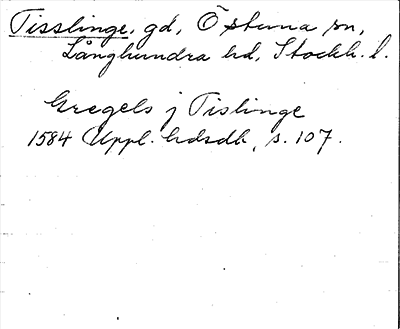 Tisslinge, gd, Östuna sn,
Långhundra hd, Stockh. l.
Gregels j Tislinge
1584 Uppl. hdsdb, s. 107.